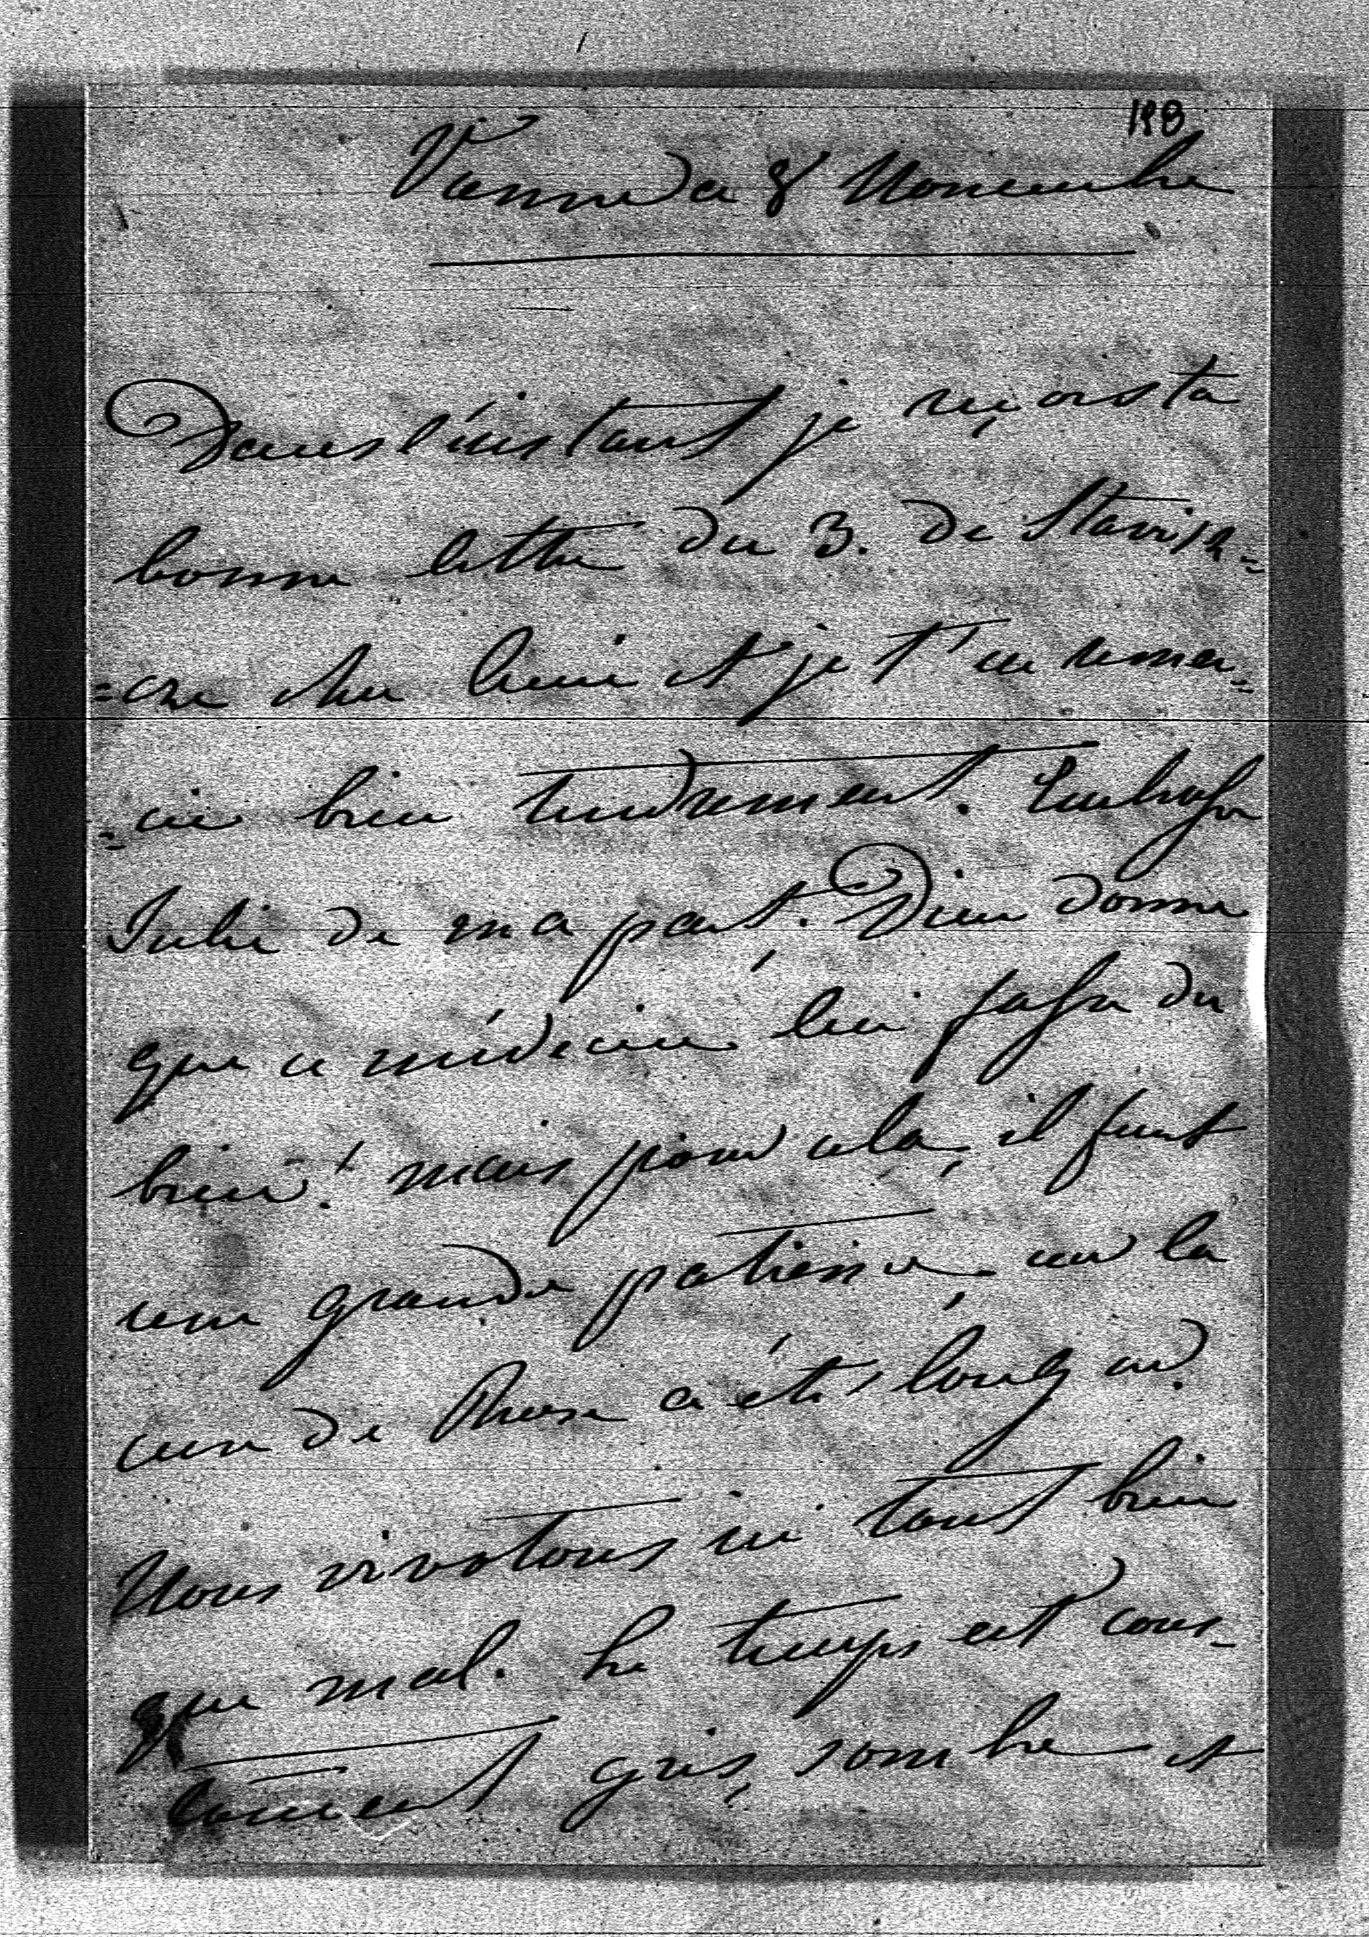 198
Vienne ce 8 Novembre
Dans l'instant je reçois ta
bonne lettre du 3. de Stavisz=
=cze cher amie et je t'en remer=
=cie bien tendrement. Embrasse
Julie de ma part. Dieu donne
que ce médecin lui fasse du
bien! mais pour cela, il faut
une grande patience. car la
cure de Rose a été longue.
Nous vivotons ici tant bien
que mal. Le temps est cons-
tament gris, sombre et